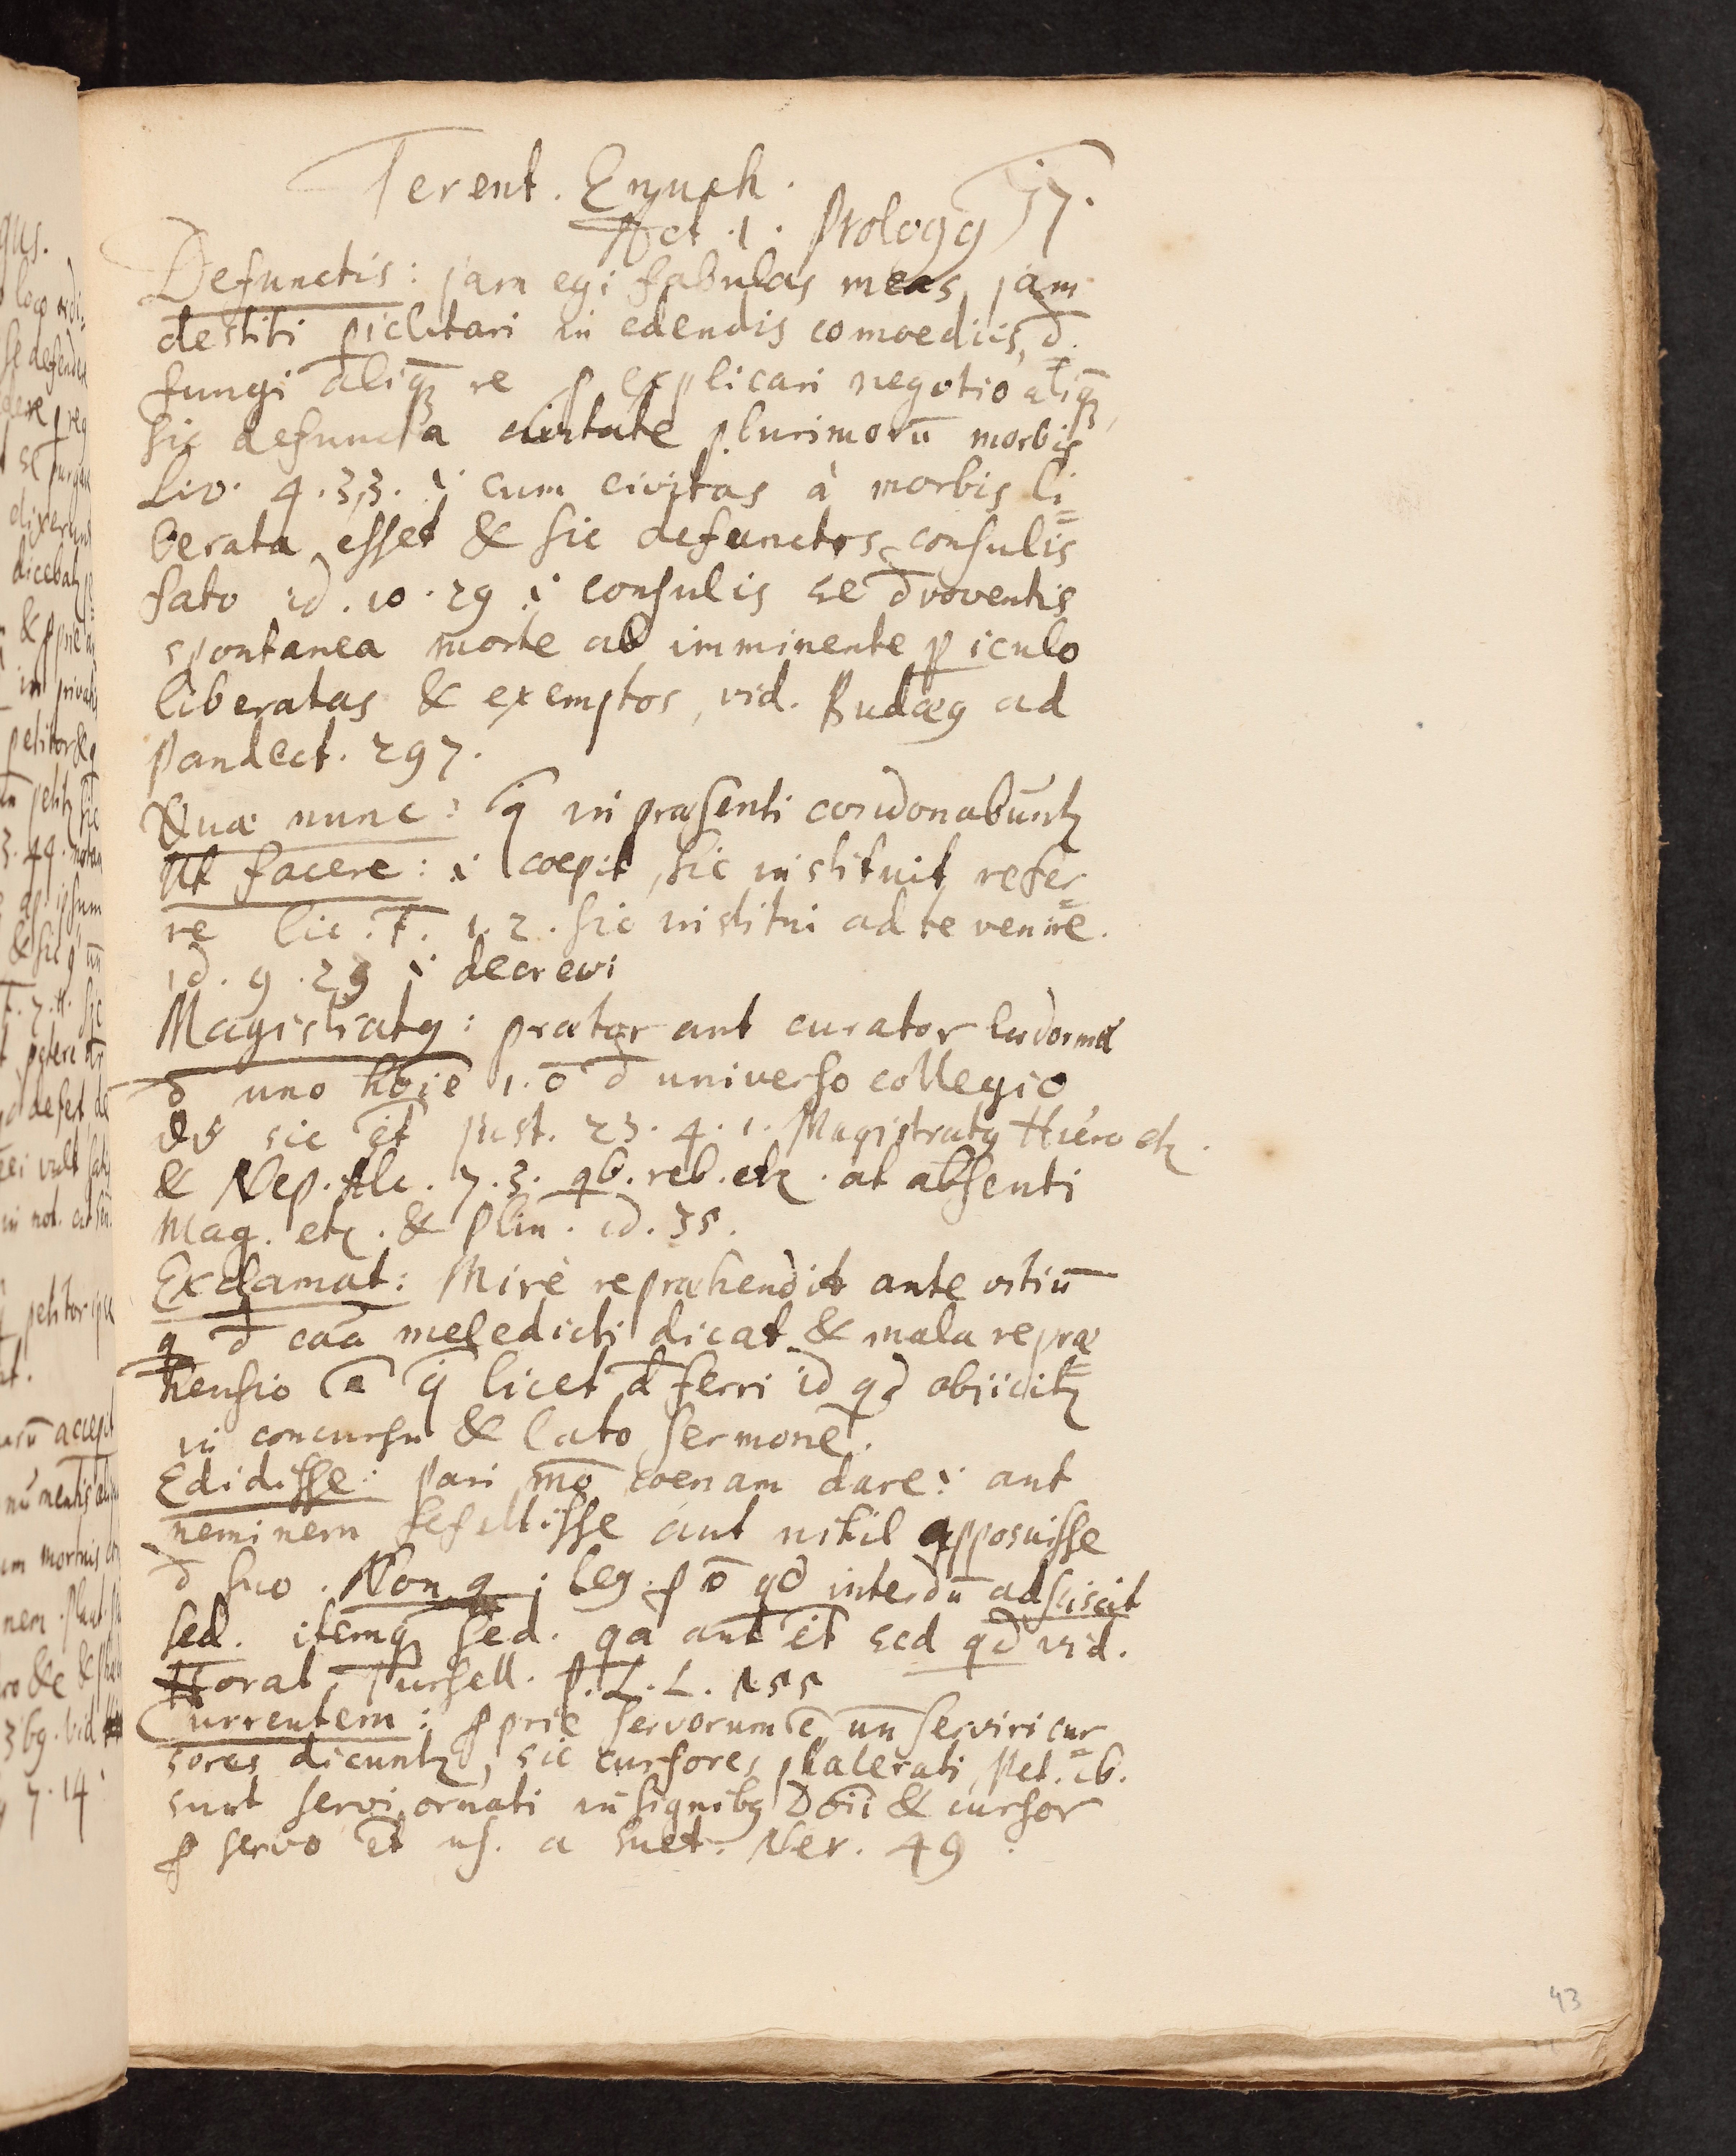 Terent. Eunuch.
Act. 1. Prologꝯ 57.
Defunctis: jam egi fabulas meas, jam
destiti ꝑiclitari in edendis comoediis, d̄
fungi aliqꝫ re ꝓ explicari negotio aliqꝫ
sic defuncta civitate plurimorū morbis
Liv. 4.33. i cum civitas à morbis li=
berata esset & sic defunctos consulis
fato id. 10.29 i consulis se d̄voventis
spontanea morte ab imminente ꝑiculo
liberatas & exemptos, vid. Budæꝯ ad
Pandect. 297.
Quæ nunc: q̄ in præsenti condonabūntꝫ
Ut facere: i coepit, sic instituit refer=
re Cic. F. 1.2. sic institui ad te venire.
id. 9.29 i decrevi
Magistratꝯ: prætor aut curator ludorum
d̄ uno hōie 1. ō d̄ universo collegio
sic ēt Just. 23.4.1. Magistratꝯ Hiero etꝫ.
& Nep. Alc. 7.3. qb. reb. etꝫ. at absenti
Mag. etꝫ. & Plin. id. 35.
Exclamat: Mirè repræhendit ante vitiū
q d̄ caā meledicti dicat & mala repræ=
hensio ē q̄ licet d̄ferri id qd obijcitꝫ
in concursu & lato sermone.
Edidisse: pari mō coenam dare i aut
neminem fefellisse aut nihil apposuisse
d̄ suo. Non q: leg. ꝓ ō qd interdū adsciscit
sed. itemqꝫ sed. qa aut ēt sed qd vid.
Horat. Tursell. P.L.L. 155
Currentem: ꝓprie servorum ē, un̄ serviri cur=
sores dicuntꝫ, sic cursores phalerati Pet. ib.
sunt servi ornati insignibꝯ Dn̄i & cursor
ꝓ servo ēt us. a Suet. Ner. 49.
43